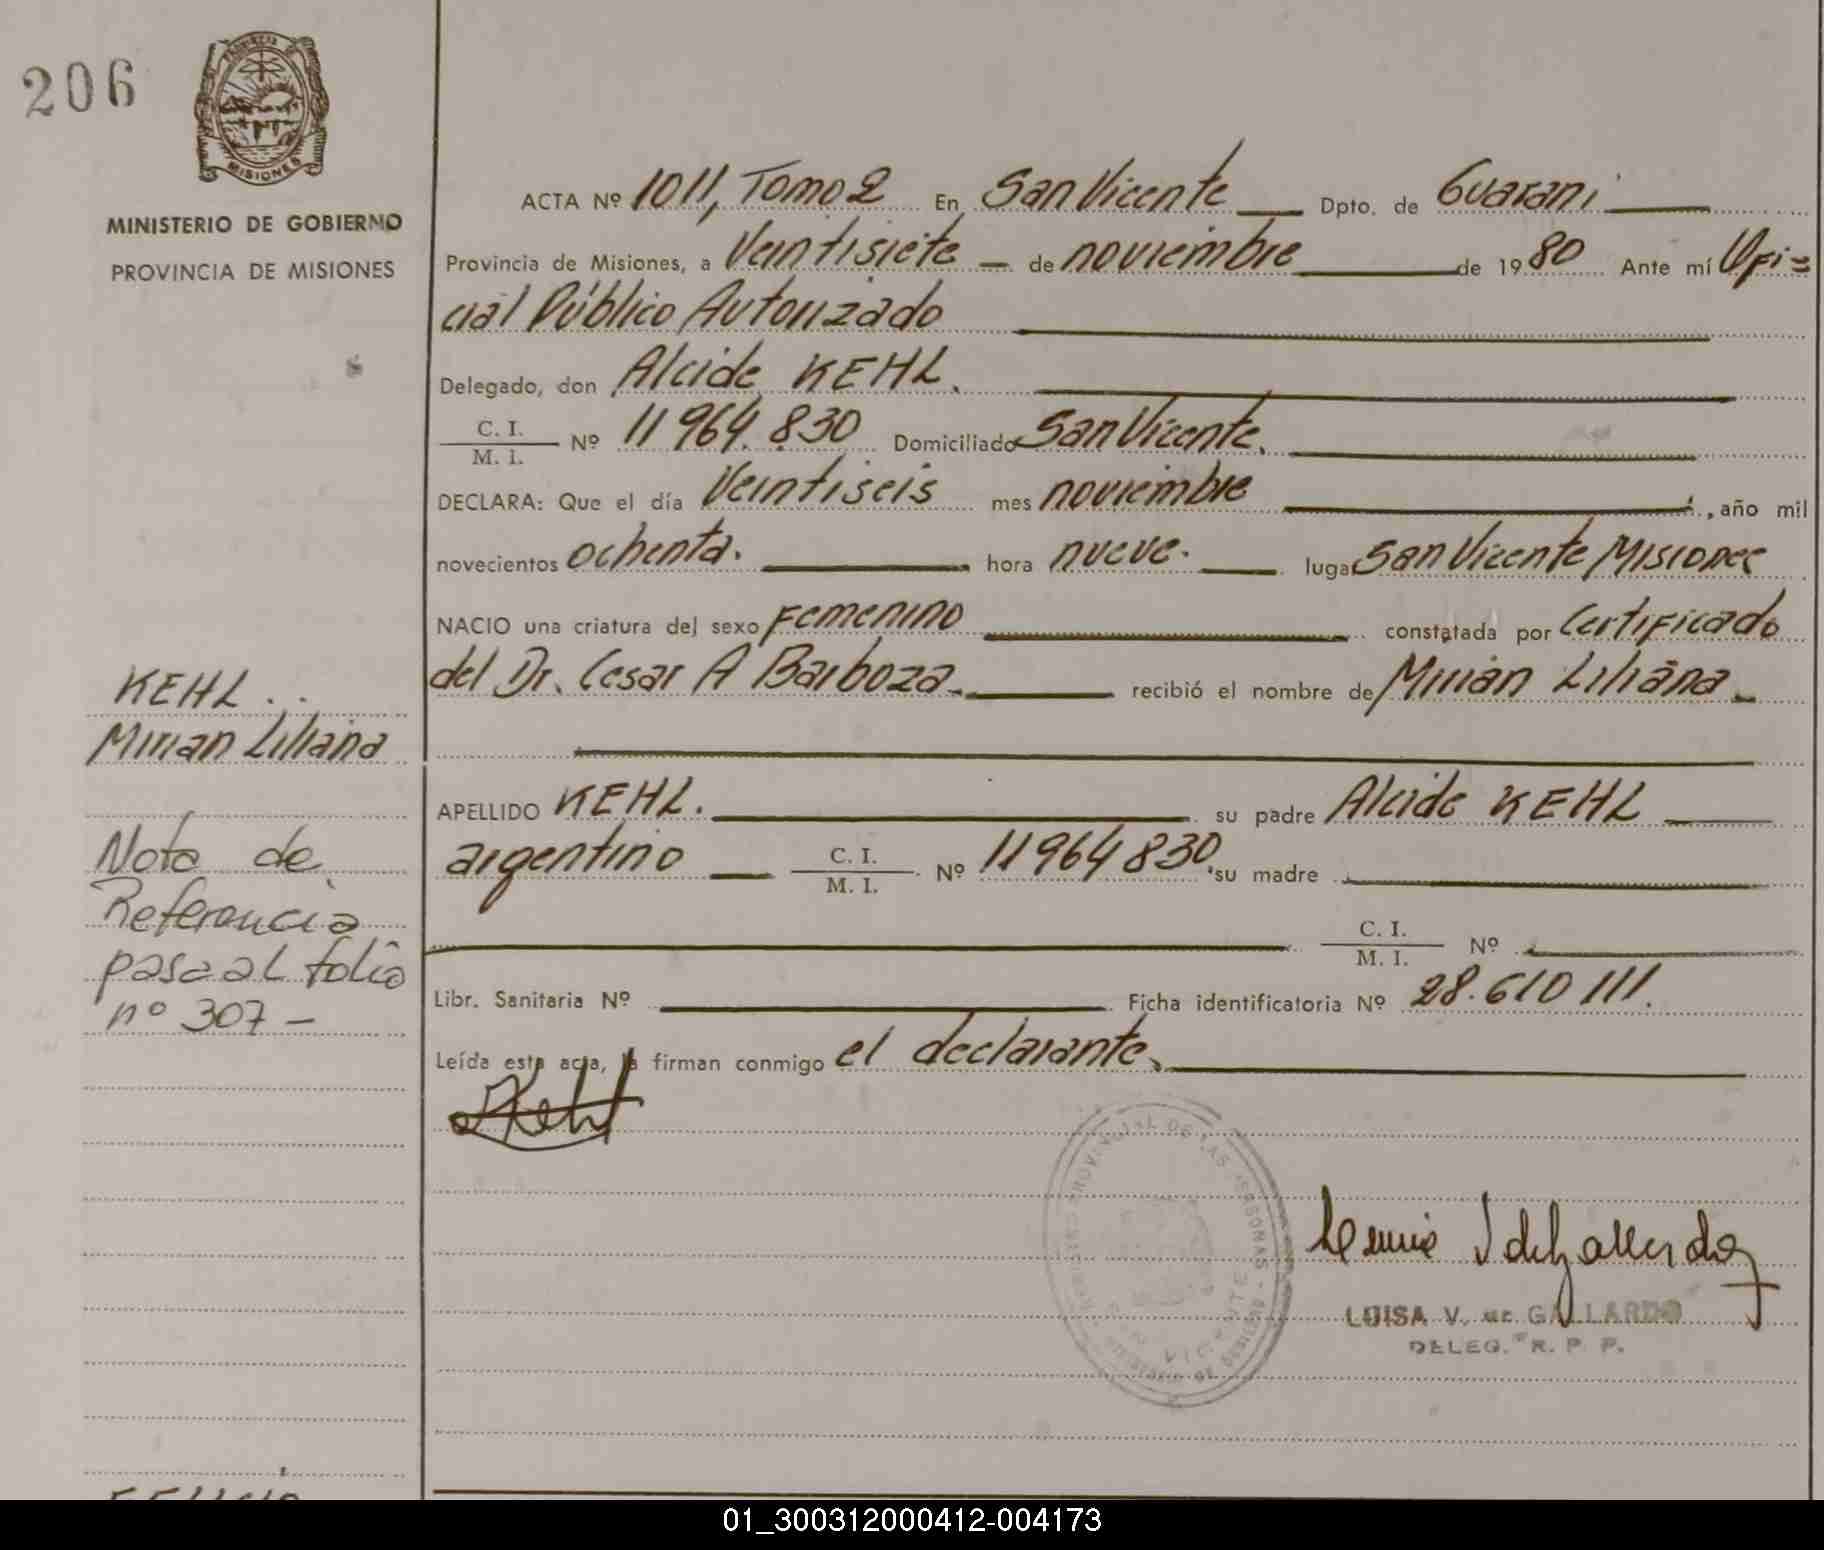 206
PROVINCIA DE
MISIONES
MINISTERIO DE GOBIERNO
PROVINCIA DE MISIONES
ACTA Nº 1011, Tomo 2 En San Vicente Dpto. de Guarani
Provincia de Misiones, a Veintisiete de noviembre de 1980 Ante mí Ofi=
cial Público Autorizado
Delegado, don Alcide KEHL.
C. I.
M. I. Nº 11 964.830 Domiciliado San Vicente.
DECLARA: Que el día Veintiseis mes noviembre, año mil
novecientos ochenta. hora nueve. lugar San Vicente Misiones
NACIO una criatura del sexo Femenino constatada por Certificado
del Dr. Cesar A Barboza. recibió el nombre de Mirian Liliana
KEHL
Mirian Liliana
APELLIDO KEHL. su padre Alcide KEHL
argentino C. I.
M. I. Nº 11964830 su madre
C. I.
M. I. Nº
Nota de
Referencia
pasa al folio
nº 307 -
Libr. Sanitaria Nº Ficha identificatoria Nº 28.610 111.
Leída esta acta, la firman conmigo el declarante.
Kehl
REGISTRO PROVINCIAL DE LAS PERSONAS
VICENTE
LUISA V. de GALLARDO
DELEG. R. P. P.
01_300312000412-004173